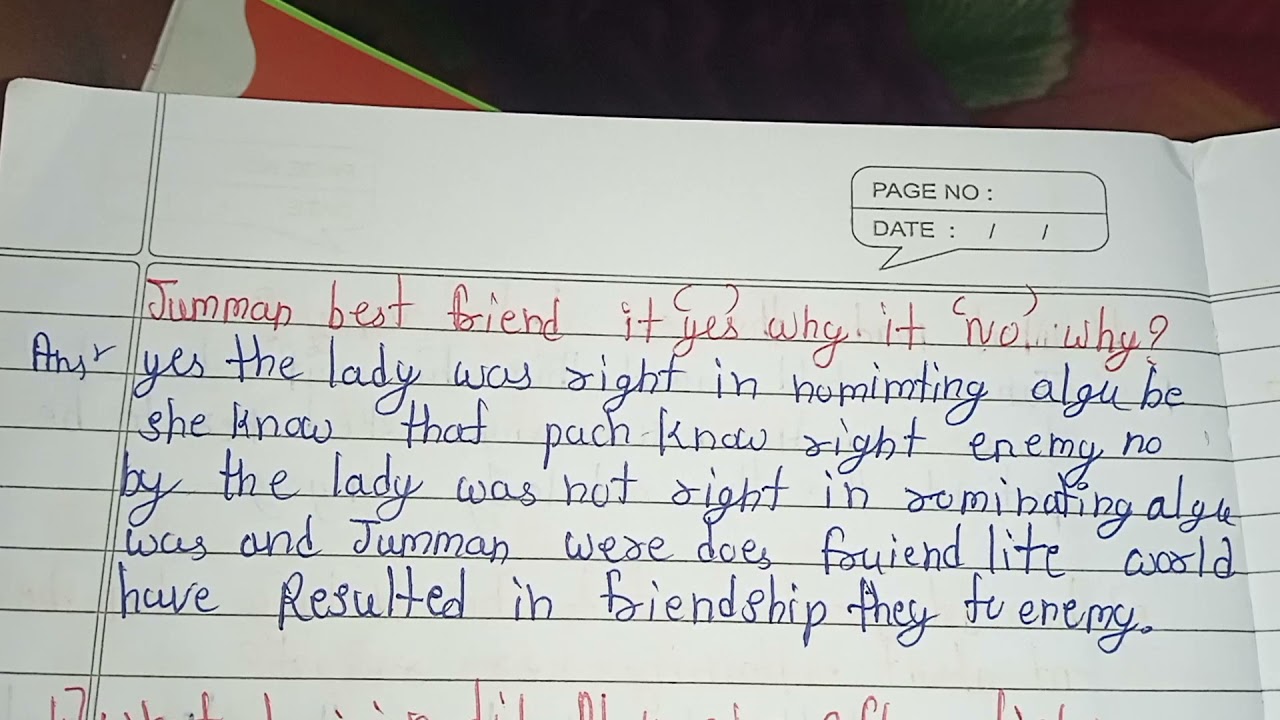 PAGE NO :
DATE : / /
Jumman best friend it (yes) why. it (No) why?
Ansr yes the lady was right in nomimting algu be
she know that pach know right enemy no
by the lady was not right in rominating algu
was and Jumman were does fruiend lite world
have Resulted in friendship they to enemy.